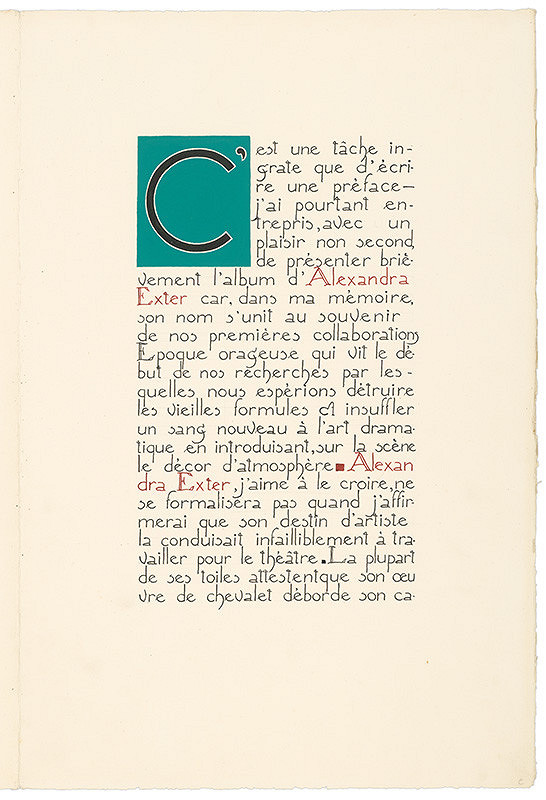 C'est une tâche in-
grate que d'écri-
re une préface—
j'ai pourtant en-
trepris, avec un
plaisir non second,
de présenter briè-
vement l'album d'Alexandra
Exter car, dans ma mémoire,
son nom s'unit au souvenir
de nos premières collaborations
Epoque orageuse qui vit le dé-
but de nos recherches par les-
quelles nous espérions détruire
les vieilles formules et insuffler
un sang nouveau à l'art drama-
tique en introduisant, sur la scène
le décor d'atmosphère. Alexan
dra Exter, j'aime à le croire, ne
se formalisera pas quand j'affir
merai que son destin d'artiste
la conduisait infailliblement à tra-
vailler pour le théâtre. La plupart
de ses toiles attestent que son œu
vre de chevalet déborde son ca-